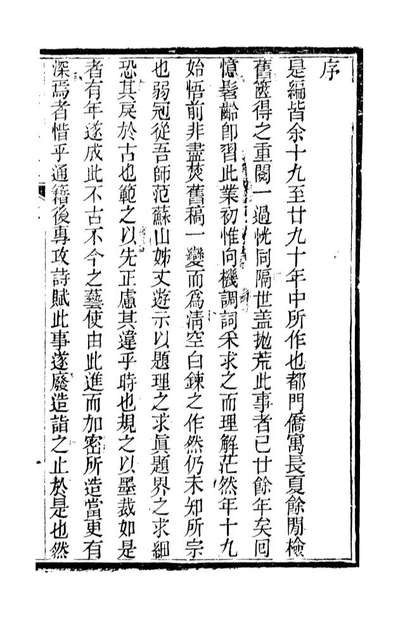 序
是編皆余十九至廿九十年中所作也都門僑寓長夏餘閒檢
舊篋得之重閱一過恍同隔世蓋拋荒此事者已廿餘年矣回
憶髫齡卽習此業初惟向機調詞釆求之而理解茫然年十九
始悟前非盡焚舊稿一變而爲淸空白鍊之作然仍未知所宗
也弱冠從吾師范蘇山姊丈遊示以題理之求眞題界之求細
恐其戾於古也範之以先正慮其違乎時也規之以墨裁如是
者有年遂成此不古不今之藝使由此進而加密所造當更有
深焉者惜乎通籍後專攻詩賦此事遂廢造詣之止於是也然